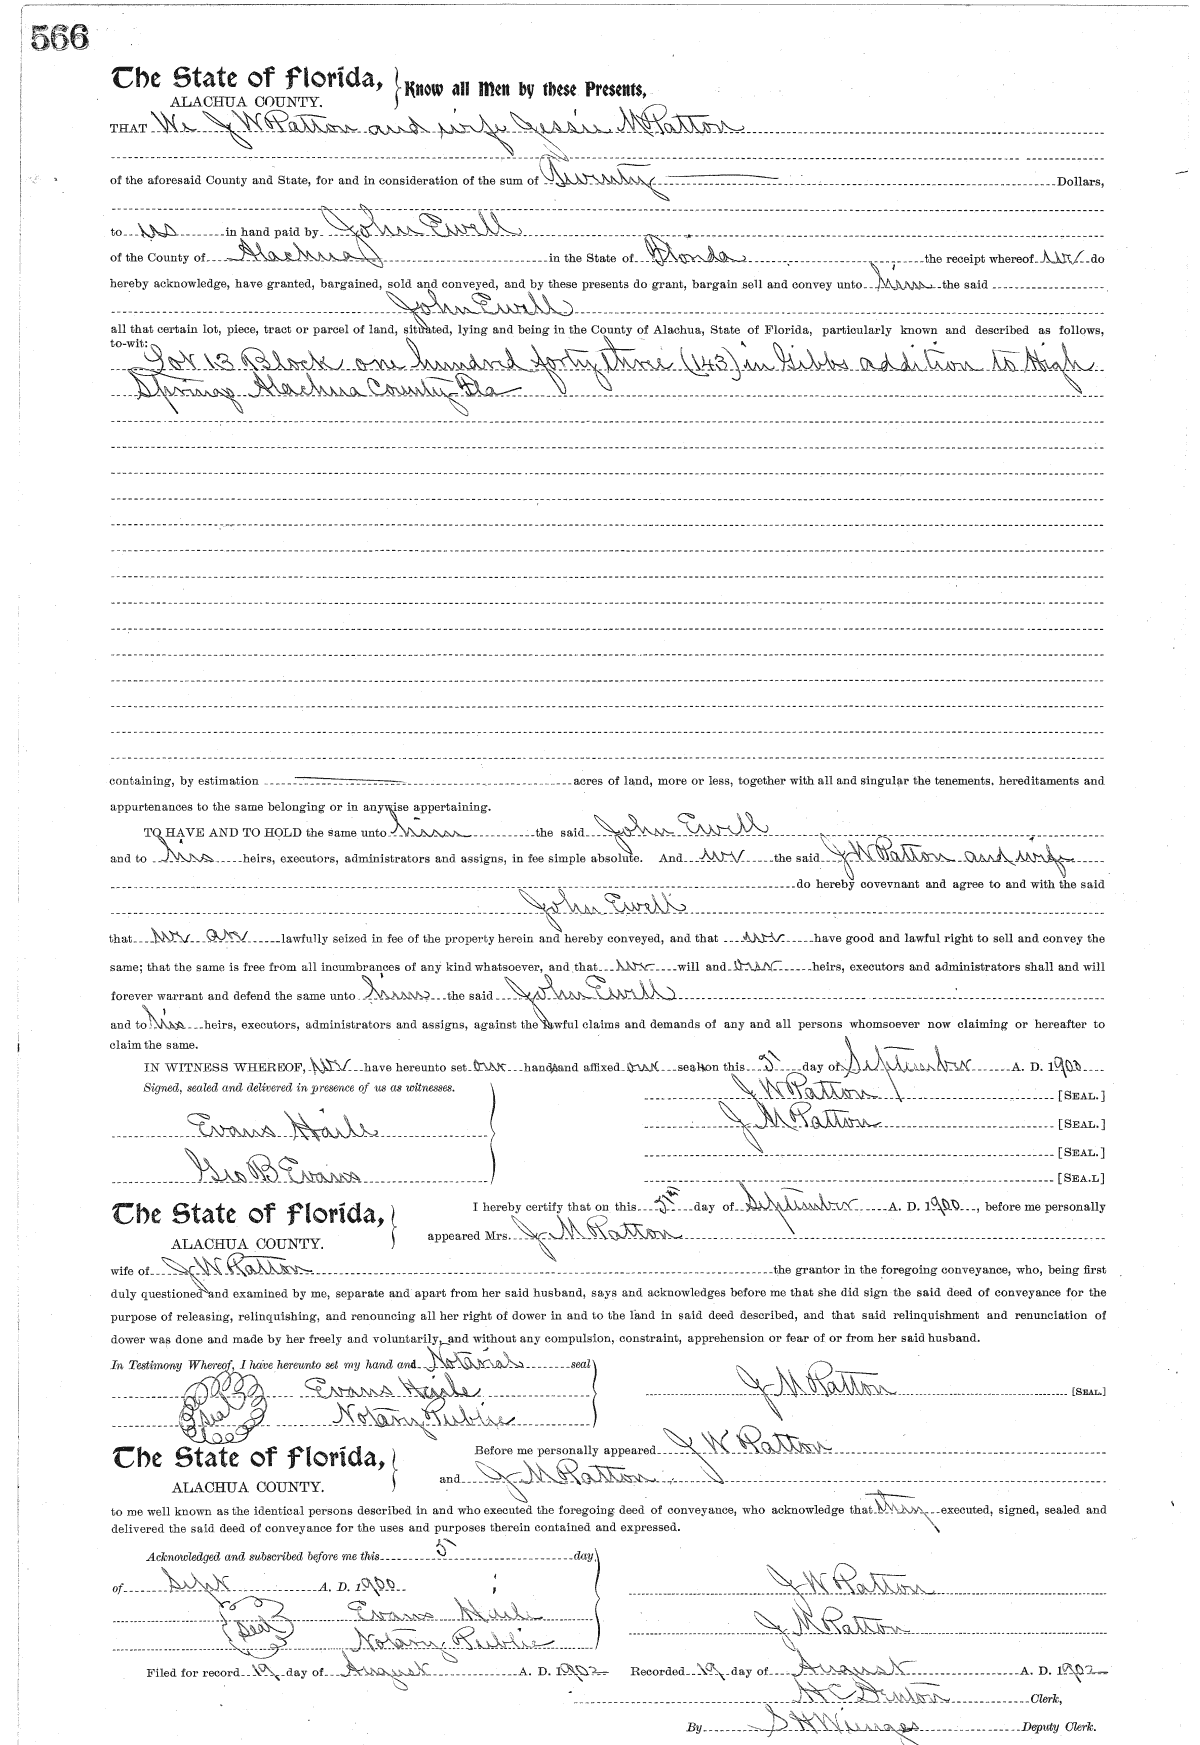 566
The State of Florida, Know all Men by these Presents,
ALACHUA COUNTY.
THAT We J W Patton and wife Jessie M Patton
of the aforesaid County and State, for and in consideration of the sum of Twenty Dollars,
to us in hand paid by John Ewell
of the County of Alachua in the State of Florida the receipt whereof we do
hereby acknowledge, have granted, bargained, sold and conveyed, and by these presents do grant, bargain sell and convey unto him the said
John Ewell
all that certain lot, piece, tract or parcel of land, situated, lying and being in the County of Alachua, State of Florida, particularly known and described as follows,
to-wit:
Lot 13 Block one hundred forty three (143) in Gibbs addition to High
Springs Alachua County Fla
containing, by estimation acres of land, more or less, together with all and singular the tenements, hereditaments and
appurtenances to the same belonging or in anywise appertaining.
TO HAVE AND TO HOLD the same unto him the said John Ewell
and to his heirs, executors, administrators and assigns, in fee simple absolute. And we the said J W Patton and wife
do hereby covevnant and agree to and with the said
John Ewell
that we are lawfully seized in fee of the property herein and hereby conveyed, and that we have good and lawful right to sell and convey the
same; that the same is free from all incumbrances of any kind whatsoever, and that we will and our heirs, executors and administrators shall and will
forever warrant and defend the same unto him the said John Ewell
and to his heirs, executors, administrators and assigns, against the lawful claims and demands of any and all persons whomsoever now claiming or hereafter to
claim the same.
IN WITNESS WHEREOF, we have hereunto set our hands and affixed our seals on this 5 day of September A. D. 1900
Signed, sealed and delivered in presence of us as witnesses. J W Patton [SEAL.]
Evans Haile J M Patton [SEAL.]
[SEAL.]
Geo B Evans [SEA.L]
The State of Florida, I hereby certify that on this 5th day of September A. D. 1900, before me personally
ALACHUA COUNTY. appeared Mrs. J M Patton
wife of J W Patton the grantor in the foregoing conveyance, who, being first
duly questioned and examined by me, separate and apart from her said husband, says and acknowledges before me that she did sign the said deed of conveyance for the
purpose of releasing, relinquishing, and renouncing all her right of dower in and to the land in said deed described, and that said relinquishment and renunciation of
dower was done and made by her freely and voluntarily, and without any compulsion, constraint, apprehension or fear of or from her said husband.
In Testimony Whereof, I have hereunto set my hand and Notarial seal
Evans Haile J M Patton [SEAL.]
Seal Notary Public
The State of Florida, Before me personally appeared J W Patton
ALACHUA COUNTY. and J M Patton
to me well known as the identical persons described in and who executed the foregoing deed of conveyance, who acknowledge that they executed, signed, sealed and
delivered the said deed of conveyance for the uses and purposes therein contained and expressed.
Acknowledged and subscribed before me this 5 day
of Sept A. D. 1900 J W Patton
Seal Evans Haile J M Patton
Notary Public
Filed for record 19 day of August A. D. 1902 Recorded 19 day of August A. D. 1902
H C Denton Clerk,
By S H Wienges Deputy Clerk.